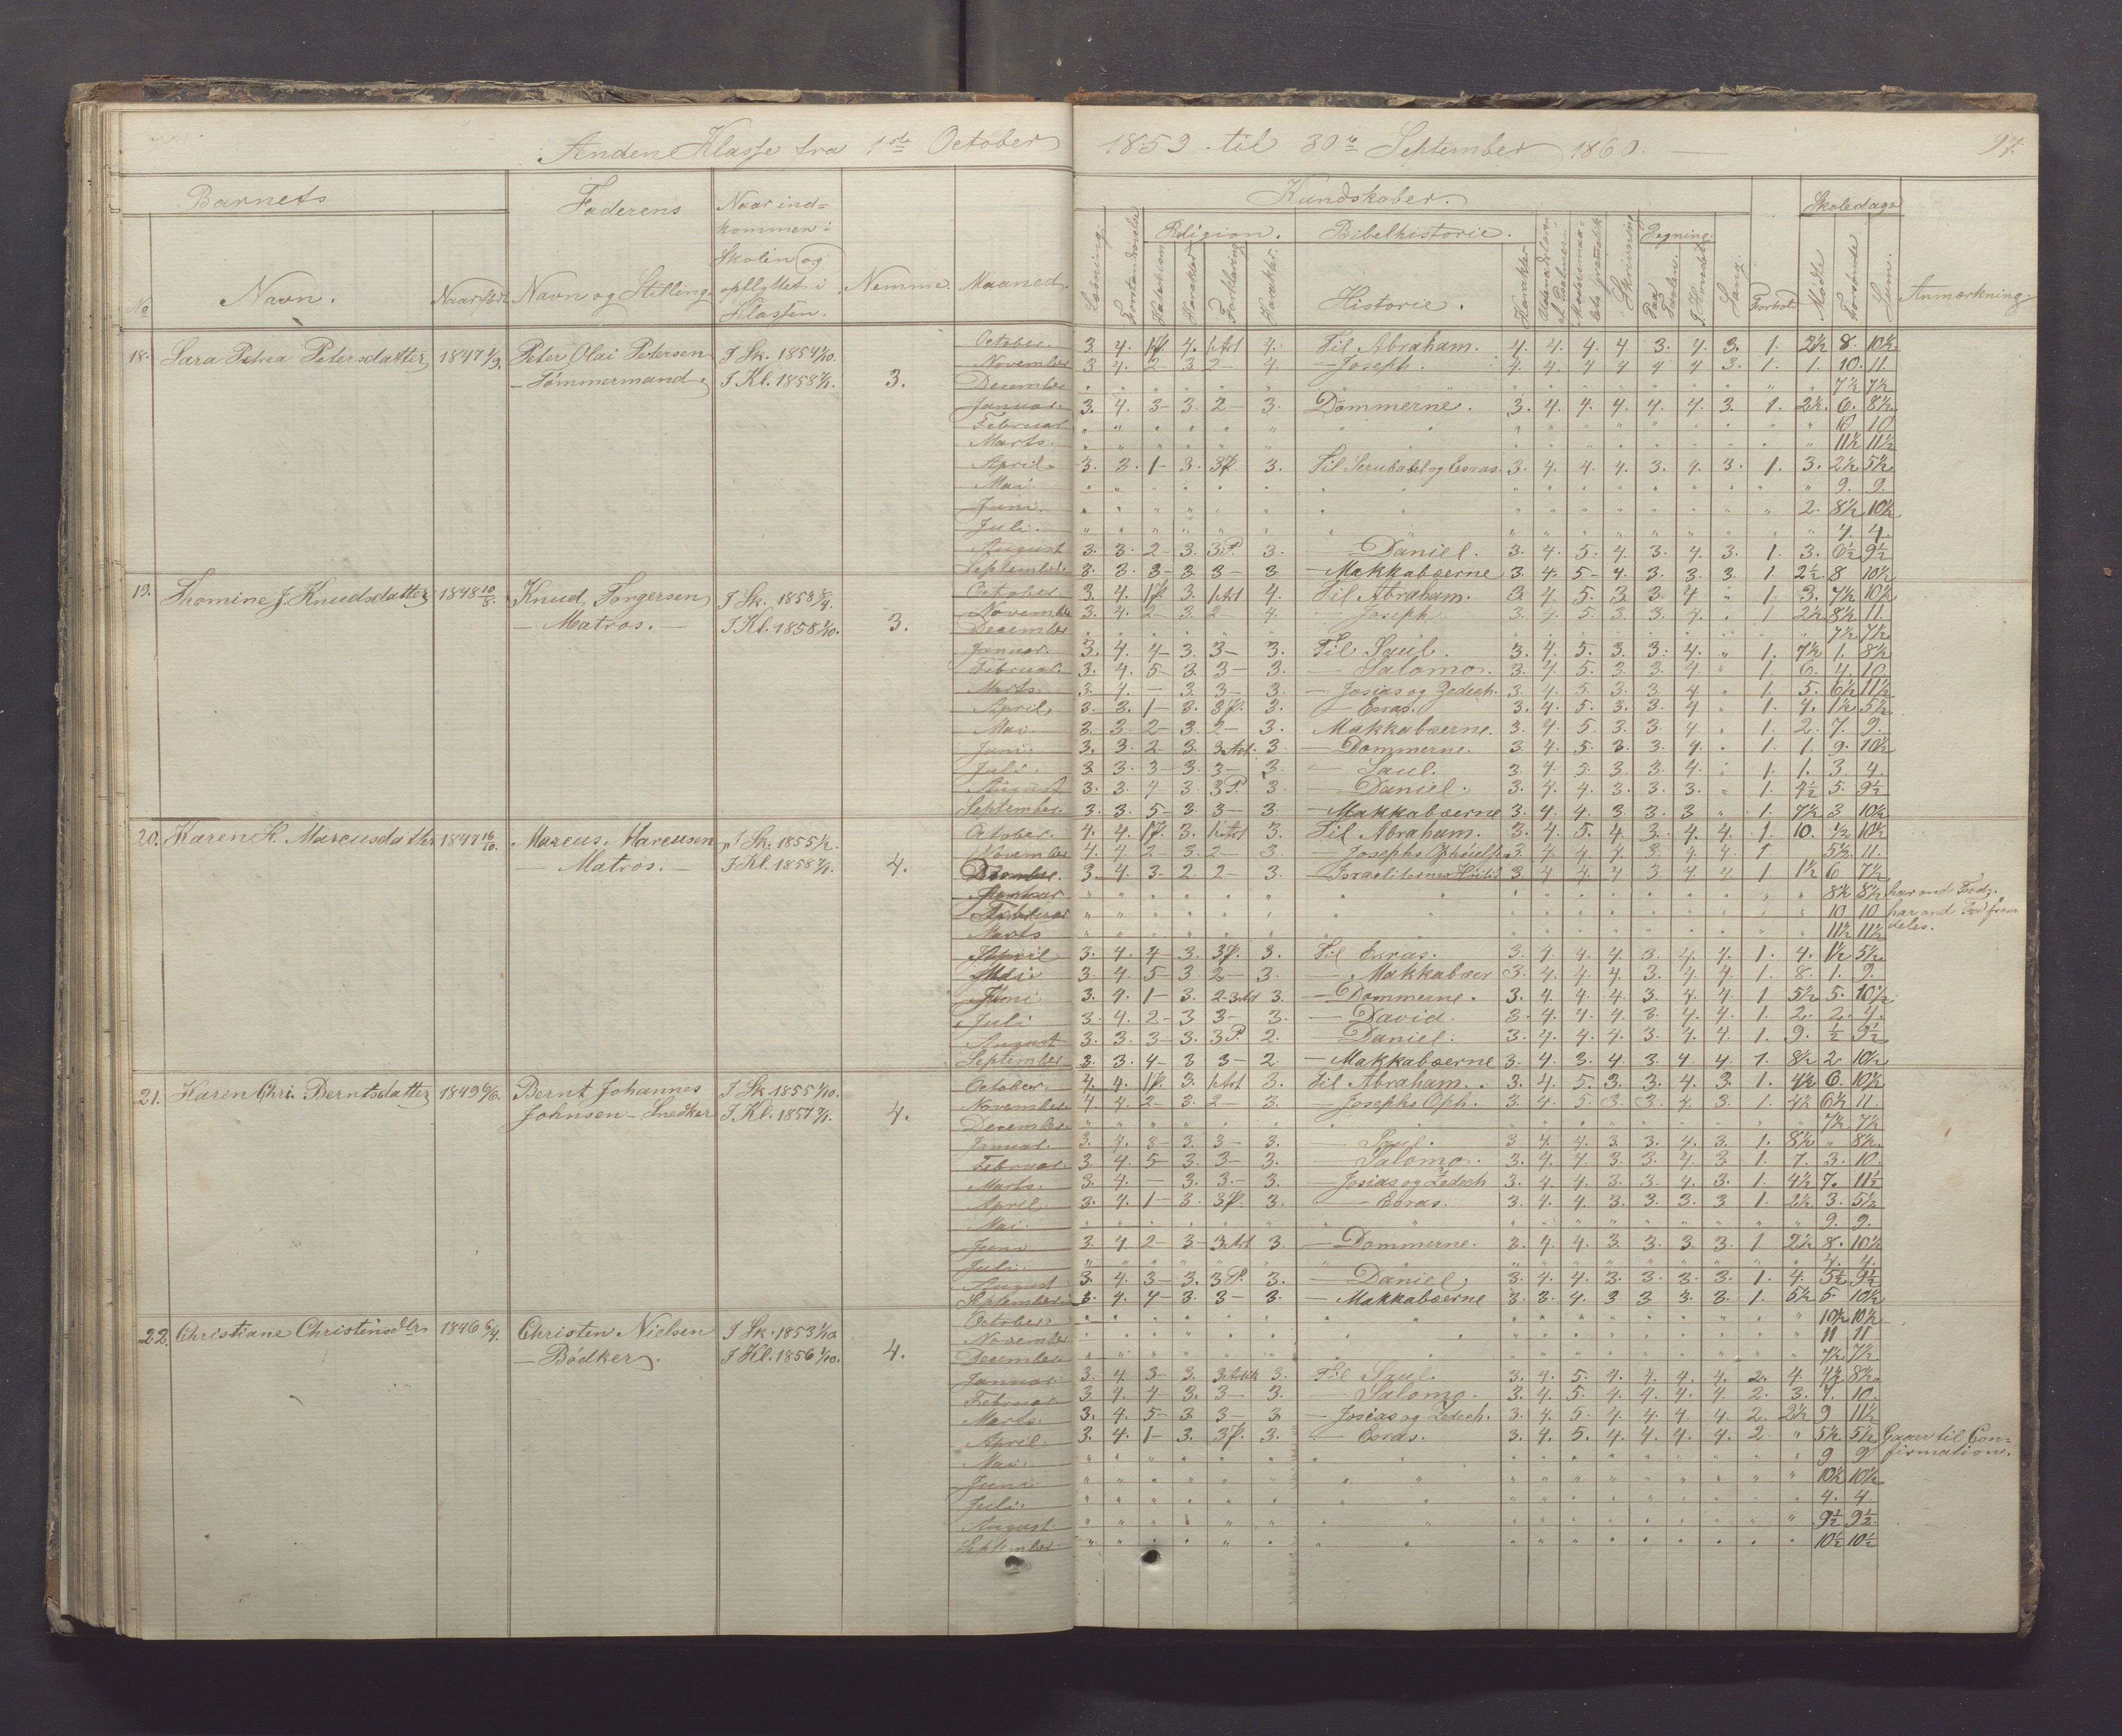 Anden Klasse fra 1ste October 1859 til 30te September 1860. 97.
Barnets Faderens Naar ind= Kundskaber. Skoledage
kommen i Religion. Bibelhistorie. Regning.
Skolen og
No Navn. Naar født. Navn og Stilling. opflyttet i Nemme. Maaned. Læsning. Forstandsøvelse Karakter. Forklaring Karakter. Historie. Karakter Udenadslæsn. af Psalmer Modersmaalets Grammatik Skrivning Paa Tavlen. I Hovedet Sang. Forhold Mødte Forsømte Sum. Anmærkning.
Klassen.
18. Sara Petrea Petersdatter 1847 1/9. Peter Olai Petersen I Sk. 1854 1/10. 3. October. 3. 4. 1 P. 4. 1 Art 4. Til Abraham. 4. 4. 4. 4 3. 4. 3. 1. 2½ 8. 10½
— Tømmermand. I Kl. 1858 7/1. November 3 4. 2 — 3 2 — 4. — Joseph. 4. 4. 4 4 4 4 3. 1. 1. 10. 11.
December 7½ 7½
Januar. 3. 4. 3 — 3. 2 — 3. Dommerne. 3. 4. 4. 4. 4. 4. 3. 1. 2½. 6. 8½
Februar 10 10
Marts. 11½ 11½
April. 3. 3. 1 — 3. 3 P. 3. Til Serubabel og Esras. 3. 4. 4. 4. 3. 4. 3. 1. 3. 2½ 5½
Mai. 9. 9.
Juni. 2. 8½ 10½
Juli. 4. 4.
August 3. 3. 2 — 3. 3 P. 3. — Daniel. 3. 4. 5. 4. 3. 4. 3. 1. 3. 6½ 9½
September. 3. 3. 3 — 3 3 — 3 — Makkabæerne 3. 4. 5 — 4. 3. 3. 3. 1. 2½ 8 10½
19. Thomine J. Knudsdatter 1848 10/8. Knud Torgersen I Sk. 1858 8/4. 3. October 3. 4. 1 P. 3. 1 Art 4. Til Abraham. 3. 4. 5. 3 3 4 " 1. 3. 7½ 10½
— Matros. — I Kl. 1858 1/10. November 3. 4. 2 — 3. 2 — 4. — Joseph. 3. 4. 5. 3. 3. 4. " 1 2½ 8½ 11.
December 7½ 7½
Januar. 3. 4. 4 — 3. 3 — 3. Til Saul. 3. 4. 5. 3. 3. 4. " 1. 7½ 1. 8½
Februar. 3. 4. 5 — 3. 3 — 3. — Salomo. 3. 4. 5. 3. 3. 4. " 1. 6. 4. 10.
Marts. 3. 4. — 3. 3 — 3. — Josias og Zedech. 3. 4. 5. 3. 3. 4 " 1. 5. 6½ 11½
April 3. 3. 1 — 3. 3 P. 3. — Esras. 3. 4. 5. 3. 3. 4 " 1. 4. 1½ 5½
Mai. 3. 3. 2 — 3. 2 — 3. Makkabæerne. 3. 4. 5. 3. 3 4 " 1. 2. 7. 9.
Juni. 3. 3. 2 — 3. 3 Art 3 — Dommerne. 3. 4. 5. 3. 3. 4. " 1. 1. 9. 10½
Juli. 3. 3. 3 — 3. 3 — 3. — Saul. 3. 4. 5. 3. 3. 4. " 1. 1. 3. 4.
August 3. 3. 4 — 3. 3 P. 3. — Daniel. 3. 4. 4. 3. 3. 3. " 1. 4½ 5. 9½
September. 3. 3. 5 — 3. 3 — 3 — Makkabæerne 3. 4. 4. 3. 3. 3 " 1. 7½ 3 10½
20. Karen H. Marcusdatter 1847 16/10. Marcus Marcusen I Sk. 1855 1/2. 4. October. 4. 4. 1 P. 3. 1 Art 3. Til Abraham. 3. 4. 5. 4. 3. 4. 4. 1. 10. ½ 10½
— Matros. — I Kl. 1858 7/1. November 4. 4 2 — 3. 2 — 3. — Josephs Ophöielse 3. 4. 4. 4. 3. 4. 4. 1 5½. 11.
December. 3. 4. 3 — 2. 2 — 3. — Israeliternes 3 4 4. 4 3 4 4 1 1½ 6 7½
Januar 8½ 8½ har ond Fod.
Februar 10 10 har ond Fod frem
Marts 11½ 11½ deles.
April 3. 4. 4 — 3. 3 P. 3. Til Esras. 3. 4. 4. 4. 3. 4. 4. 1. 4. 1½ 5½
Mai 3. 4. 5 — 3. 2 — 3. — Makkabæer 3. 4. 4. 4. 3. 4. 4. 1. 8. 1. 9.
Juni 3. 4. 1 — 3. 2 — 3 Art 3. — Dommerne. 3. 4. 4. 4. 3. 4. 4. 1 5½ 5. 10½
Juli 3. 4. 2 — 3 3 — 3. — David. 3. 4. 4. 4. 3. 4. 4. 1. 2. 2. 4.
August 3. 3. 3 — 3. 3 P. 2. — Daniel. 3. 4. 4. 4. 3. 4. 4. 1. 9. ½ 9½
September 3. 3. 4 — 3 3 — 2 — Makkabæerne 3. 4. 3. 4. 3. 4. 4. 1. 8½ 2 10½
21. Karen Chri. Berntsdatter 1849 6/6. Bernt Johannes I Sk 1855 1/10. 4. October. 4. 4. 1 P. 3. 1 Art 3. Til Abraham. 3. 4. 5. 3. 3. 4. 3. 1. 4½ 6. 10½
Johnsen — Snedker I Kl. 1857 7/1. November. 4. 4. 2 — 3. 2 — 3. — Josephs Oph. 3. 4. 5. 3. 3. 4. 3. 1. 4½ 6½ 11.
December 7½ 7½
Januar. 3. 4. 3 — 3. 3 — 3. — Saul. 3 4. 4. 3. 3. 4. 3. 1. 8½ " 8½
Februar. 3. 4. 5 — 3. 3 — 3. — Salomo. 3. 4. 4. 3. 3. 4. 3 1. 7. 3. 10.
Marts. 3. 4. — 3. 3 — 3. — Josias og Zedech 3. 4. 4. 3. 3. 4. 3. 1. 4½ 7. 11½
April. 3. 4. 1 — 3. 3 P. 3. — Esras. 3. 4. 4. 3. 3. 3. 3 1. 2½ 3. 5½
Mai. 9. 9.
Juni 3. 4. 2 — 3 — 3 Art 3. — Dommerne. 3. 4. 4. 3. 3. 3. 3. 1. 2½ 8. 10½
Juli. 4. 4.
August 3. 4. 3 — 3. 3 P. 3. — Daniel 3. 4. 4. 3. 3. 3. 3. 1. 4. 5½ 9½
September 3. 4. 4 — 3. 3 — 3. — Makkabæerne 3. 3. 4. 3 3. 3. 3. 1. 5½ 5 10½
22. Christiane Christensdtr 1846 6/4. Christen Nielsen I Sk. 1853 1/10. 4. October. 10½ 10½
— Bödker. I Kl. 1856 1/10. November 11 11
December 7½ 7½
Januar. 3. 4. 3 — 3. 3 Artik 3. Til Saul. 3. 4. 5. 4. 4. 4. 4. 2. 4. 4½ 8½
Februar. 3. 4. 4 — 3. 3 — 3. — Salomo. 3. 4. 5. 4. 4. 4. 4. 2. 3. 7. 10.
Marts. 3. 4. 5 — 3. 3 — 3. — Josias og Zedech. 3. 4. 5. 4. 4. 4. 4. 2. 2½ 9 11½
April. 3. 4. 1 — 3. 3 P. 3. — Esras. 3. 4. 5. 4. 4. 4. 4. 2 " 5½ 5½ Gaaer til Con=
Mai. 9 9 firmation.
Juni. 10½ 10½
Juli. 4. 4.
August. 9½ 9½
September. 10½ 10½